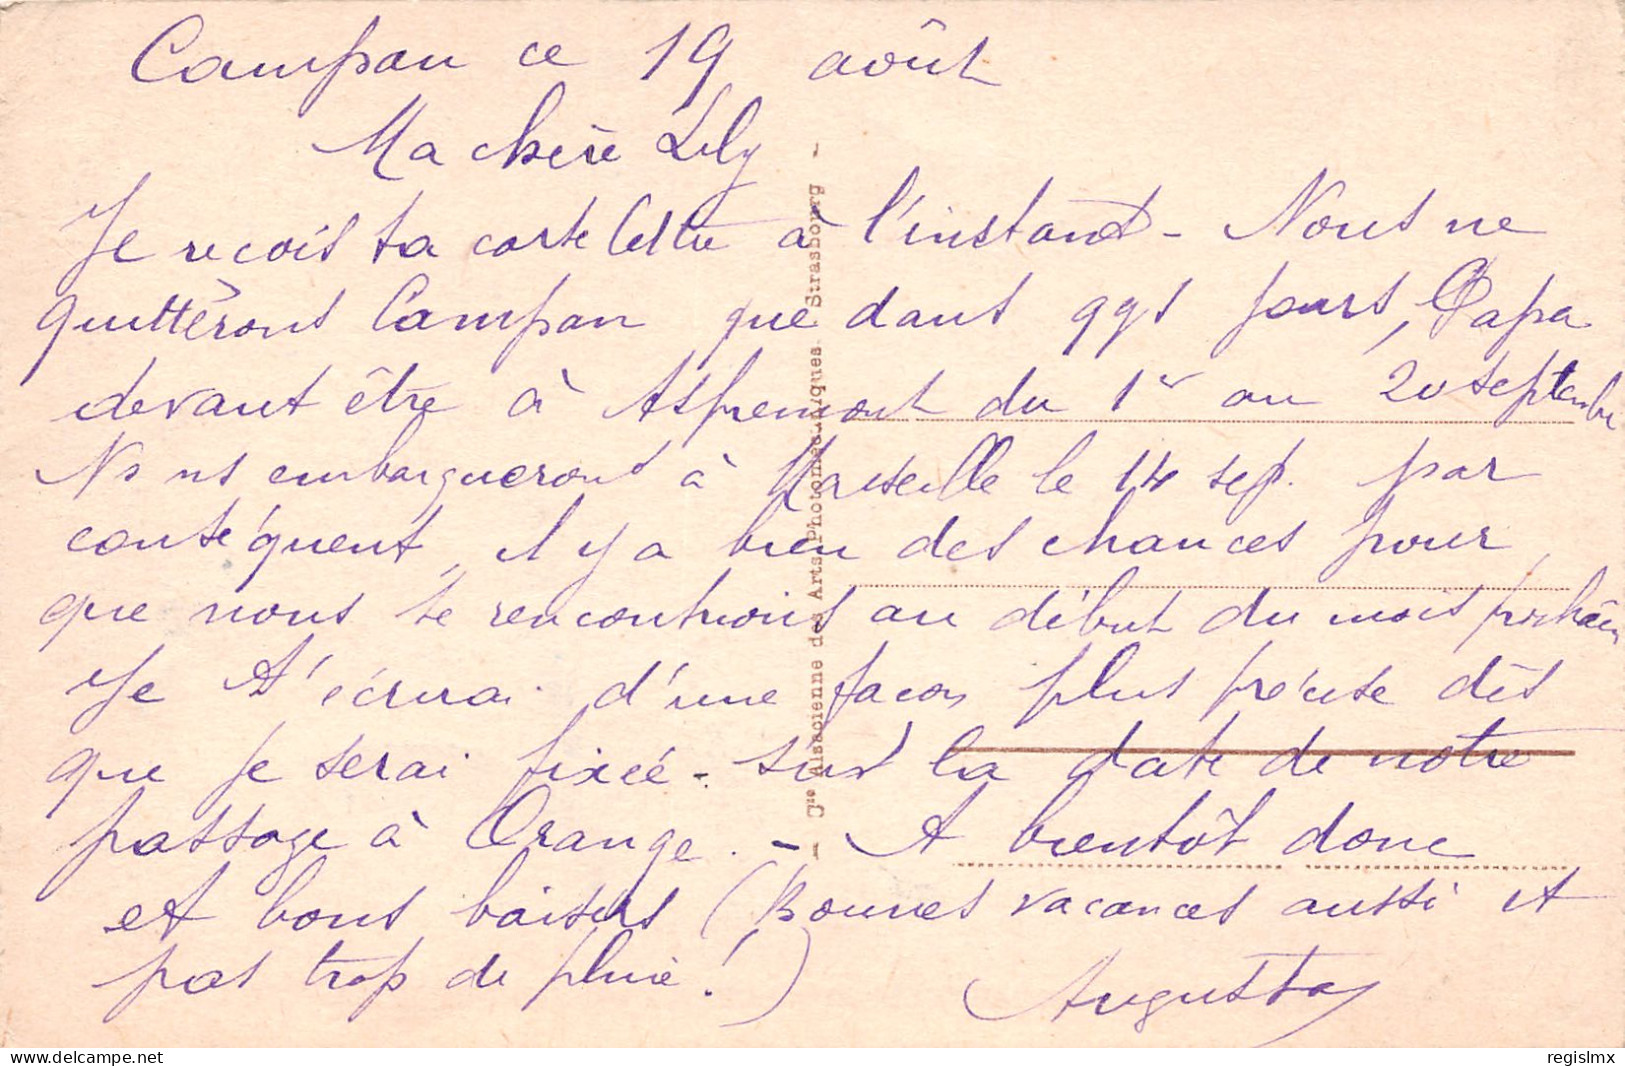 Campan ce 19 août
Ma chère Lily
Je recois ta carte lettre à l'instant - Nous ne
quittèrons Campan que dans qqs jours, Papa
devant être à Aspremont du 1er au 20 septembre
Ns ns embarquerons à Marseille le 14 sep. par
conséquent, il y a bien des chances pour
que nous te rencontrions au début du mois prochain
Je t'écrirai d'une facon plus précise dès
que je serai fixée - sur la date de notre
passage à Orange. - A bientôt donc
et bons baisers (Bonnes vacances aussi et
pas trop de pluie !)
Augusta
- Cie Alsacienne des Arts Photomécaniques Strasbourg -
delcampe.net
regislmx